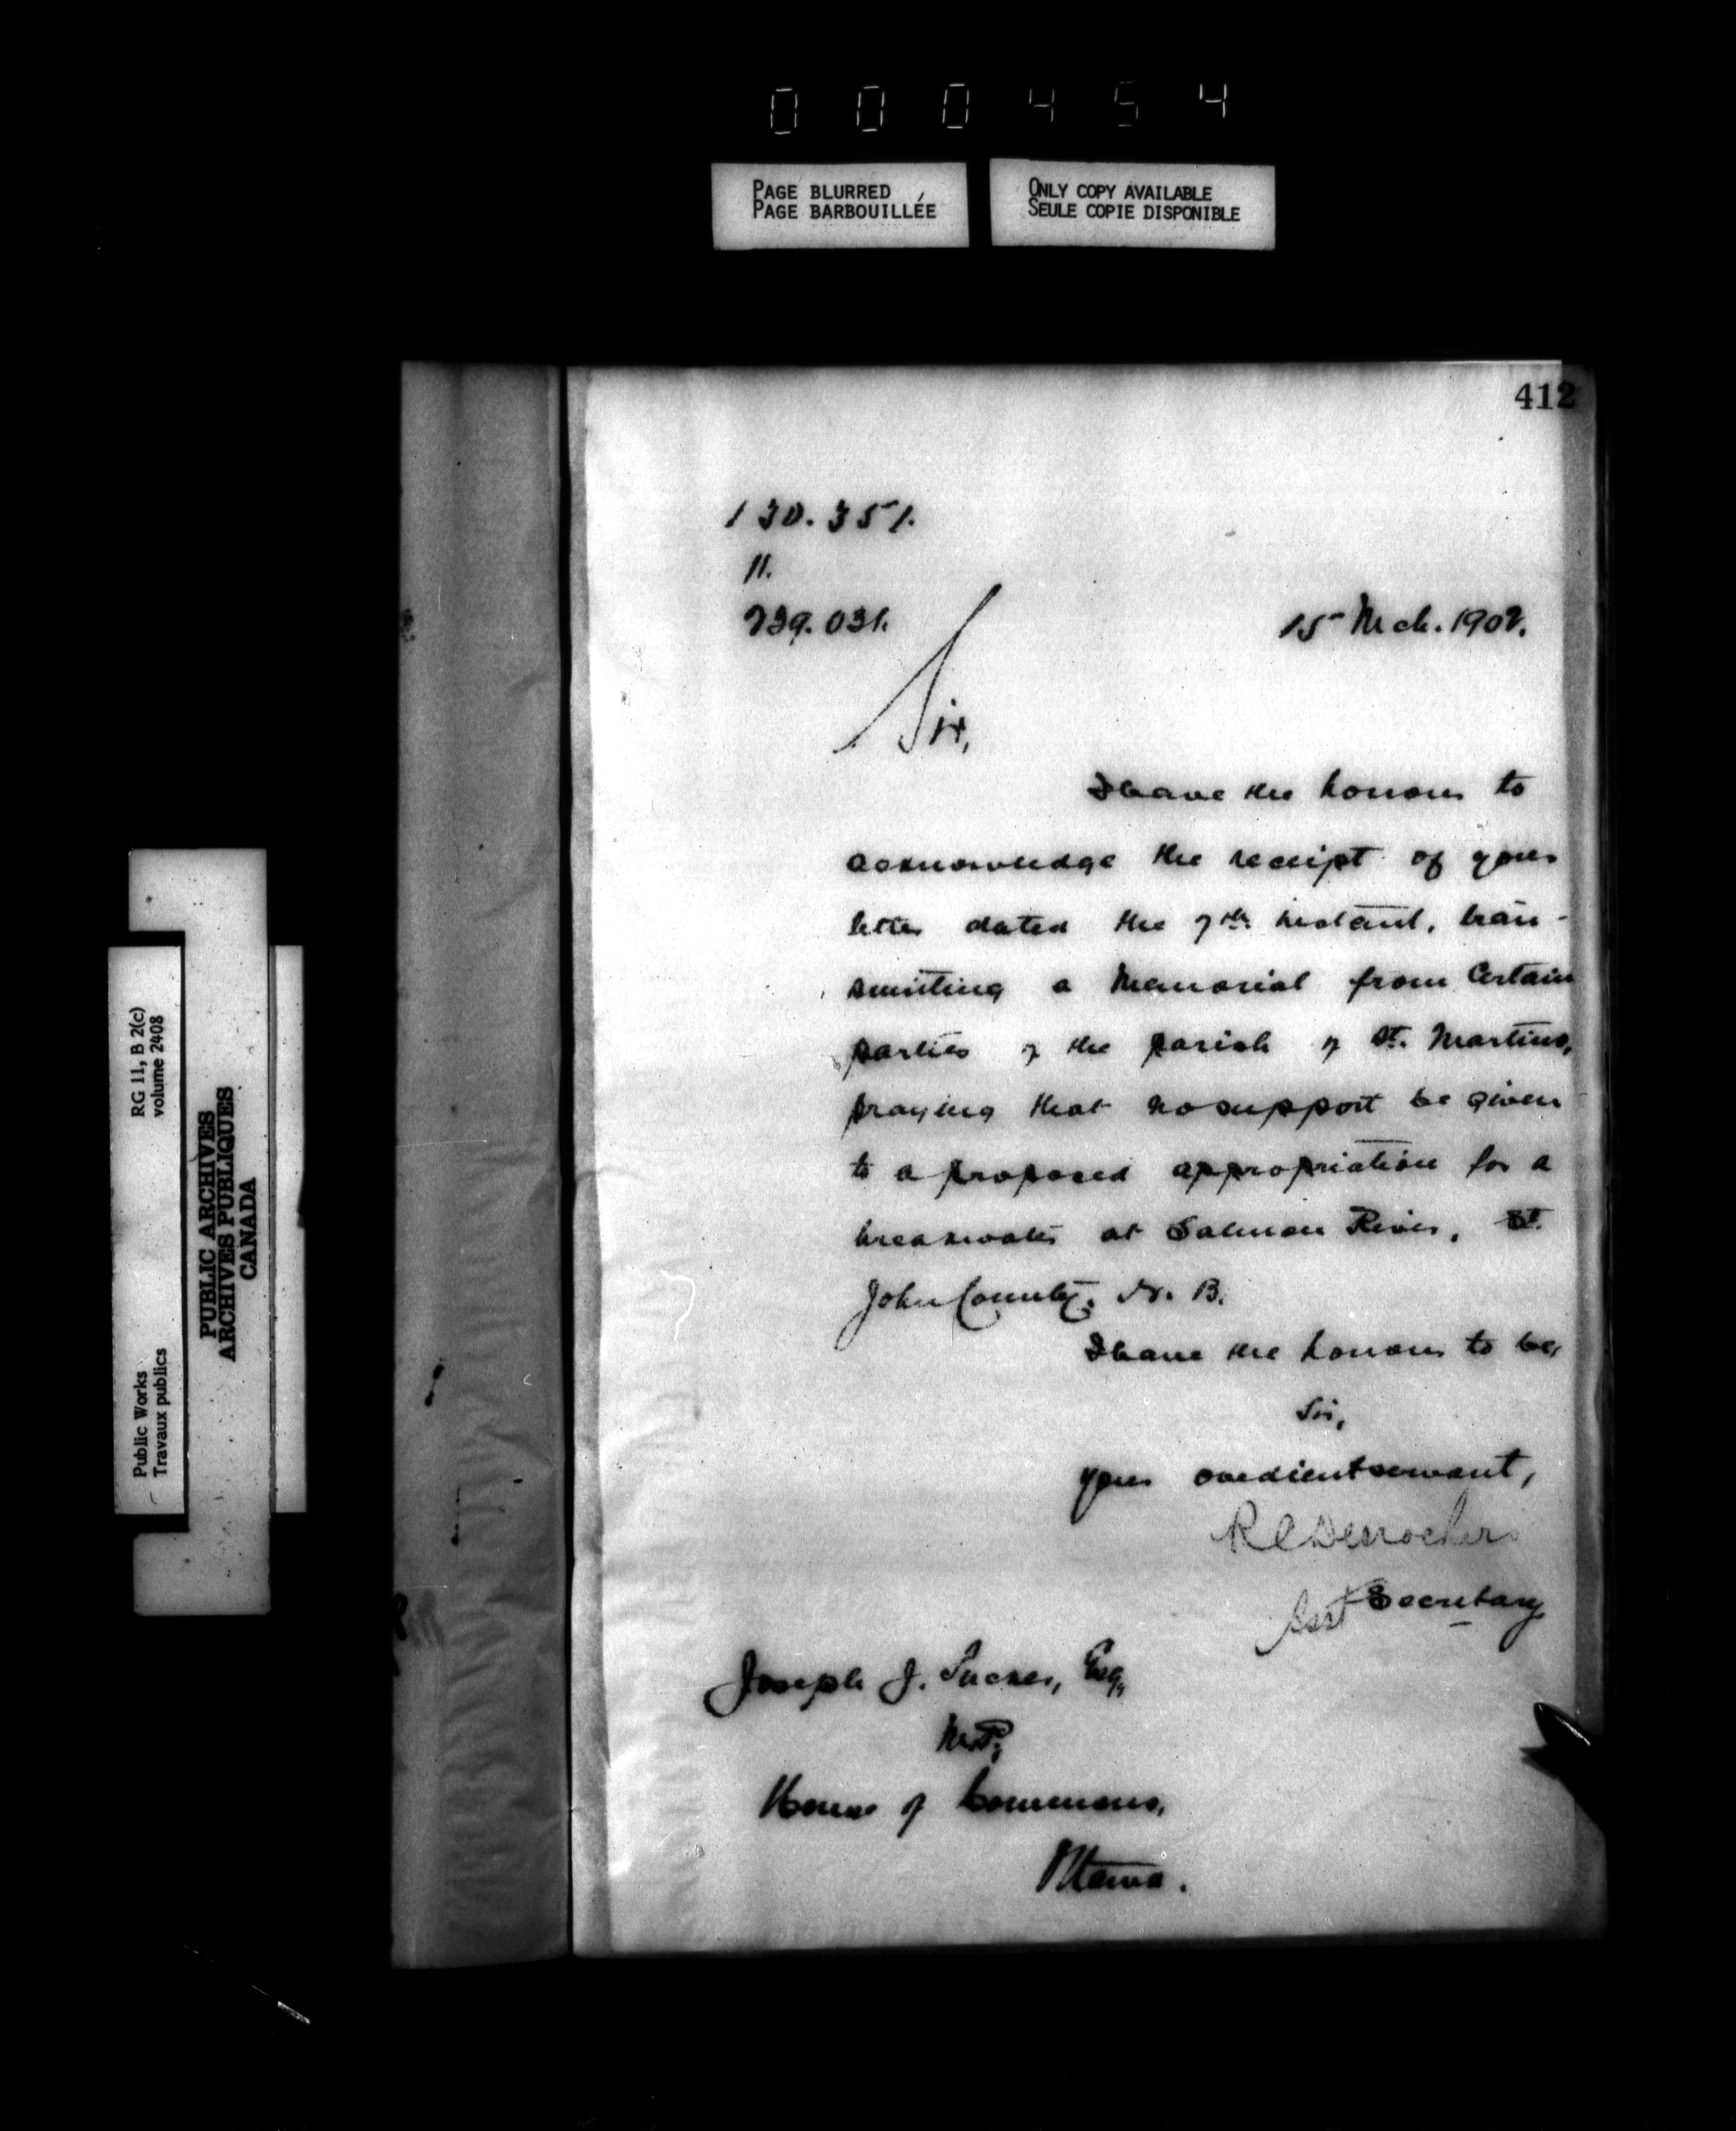 000454
PAGE BLURRED
PAGE BARBOUILLÉE
ONLY COPY AVAILABLE
SEULE COPIE DISPONIBLE
412
130.351.
11.
239.031.
15 Mch. 1902.
Sir,
I have the honour to
acknowledge the receipt of your
letter dated the 7th instant, tran-
smitting a Memorial from Certain
parties of the parish of St. Martins,
praying that no support be given
to a proposed appropriation for a
breakwater at Salmon River, St.
John County, N. B.
I have the honour to be,
Sir,
Your obedient servant,
R C Desrochers
Asst Secretary
Joseph J. Tucker, Esq.,
M.P.,
House of Commons,
Ottawa.
RG 11, B 2(c)
volume 2408
PUBLIC ARCHIVES
ARCHIVES PUBLIQUES
CANADA
Public Works
Travaux publics